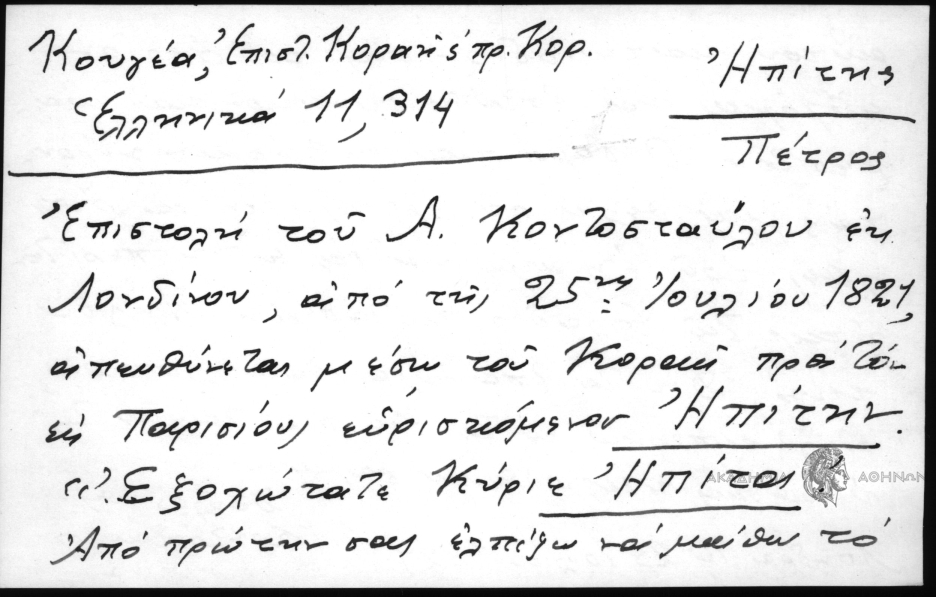 Κουγέα, Ἐπιστ. Κοραῆ & πρ. Κορ.
Ἑλληνικά 11, 314
Ἠπίτης
Πέτρος
Ἐπιστολή τοῦ Α. Κοντοσταύλου ἐκ
Λονδίνου, ἀπό τῆς 25ης Ἰουλίου 1821,
ἀπευθύνεται μέσω τοῦ Κοραῆ πρός τόν
ἐν Παρισίοις εὑρισκόμενον Ἠπίτην.
"Ἐξοχώτατε Κύριε Ἠπίτα!
Ἀπό πρώτην σας ἐλπίζω νά μάθω τό
ΑΚΑΔΗΜΙΑ ΑΘΗΝΩΝ